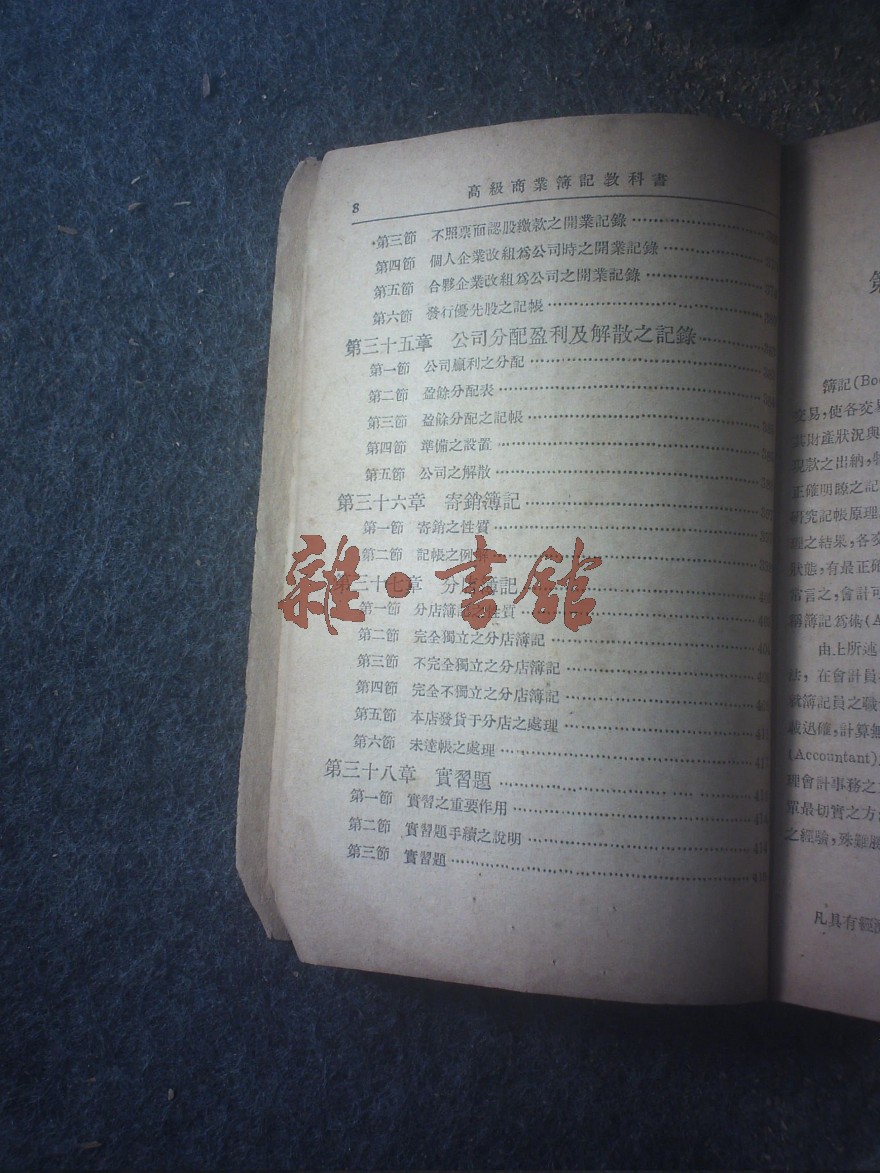 8
高級商業簿記教科書
第三節 不照票面認股繳款之開業記錄
第四節 個人企業改組爲公司時之開業記錄
第五節 合夥企業改組爲公司之開業記錄
第六節 發行優先股之記帳
第三十五章 公司分配盈利及解散之記錄
第一節 公司贏利之分配
第二節 盈餘分配表
第三節 盈餘分配之記帳
第四節 準備之設置
第五節 公司之解散
第三十六章 寄銷簿記
第一節 寄銷之性質
第二節 記帳之例解
第三十七章 分店簿記
第一節 分店簿記之性質
第二節 完全獨立之分店簿記
第三節 不完全獨立之分店簿記
第四節 完全不獨立之分店簿記
第五節 本店發貨于分店之處理
第六節 未達帳之處理
第三十八章 實習題
第一節 實習之重要作用
第二節 實習題手續之說明
第三節 實習題
雜·書館
第
簿記(Boo
交易,使各交易
其財產狀況與
現款之出納,
正確明瞭之記
研究記帳原理
理之結果,各交
狀態,有最正確
言之,會計可
簿記爲術(A
由上所述
法,在會計員
簿記員之職
載迅確,計算無
(Accountant)
理會計事務之
單最切實之方
之經驗,殊難勝
凡具有經濟